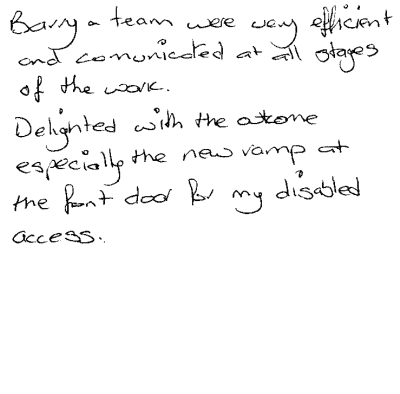 Barry & team were very efficient
and comunicated at all stages
of the work.
Delighted with the outcome
especially the new ramp at
the front door for my disabled
access.